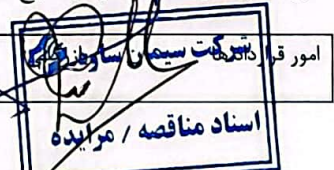 امور قراردادها
شرکت سیمان ساوه
اسناد مناقصه / مزایده